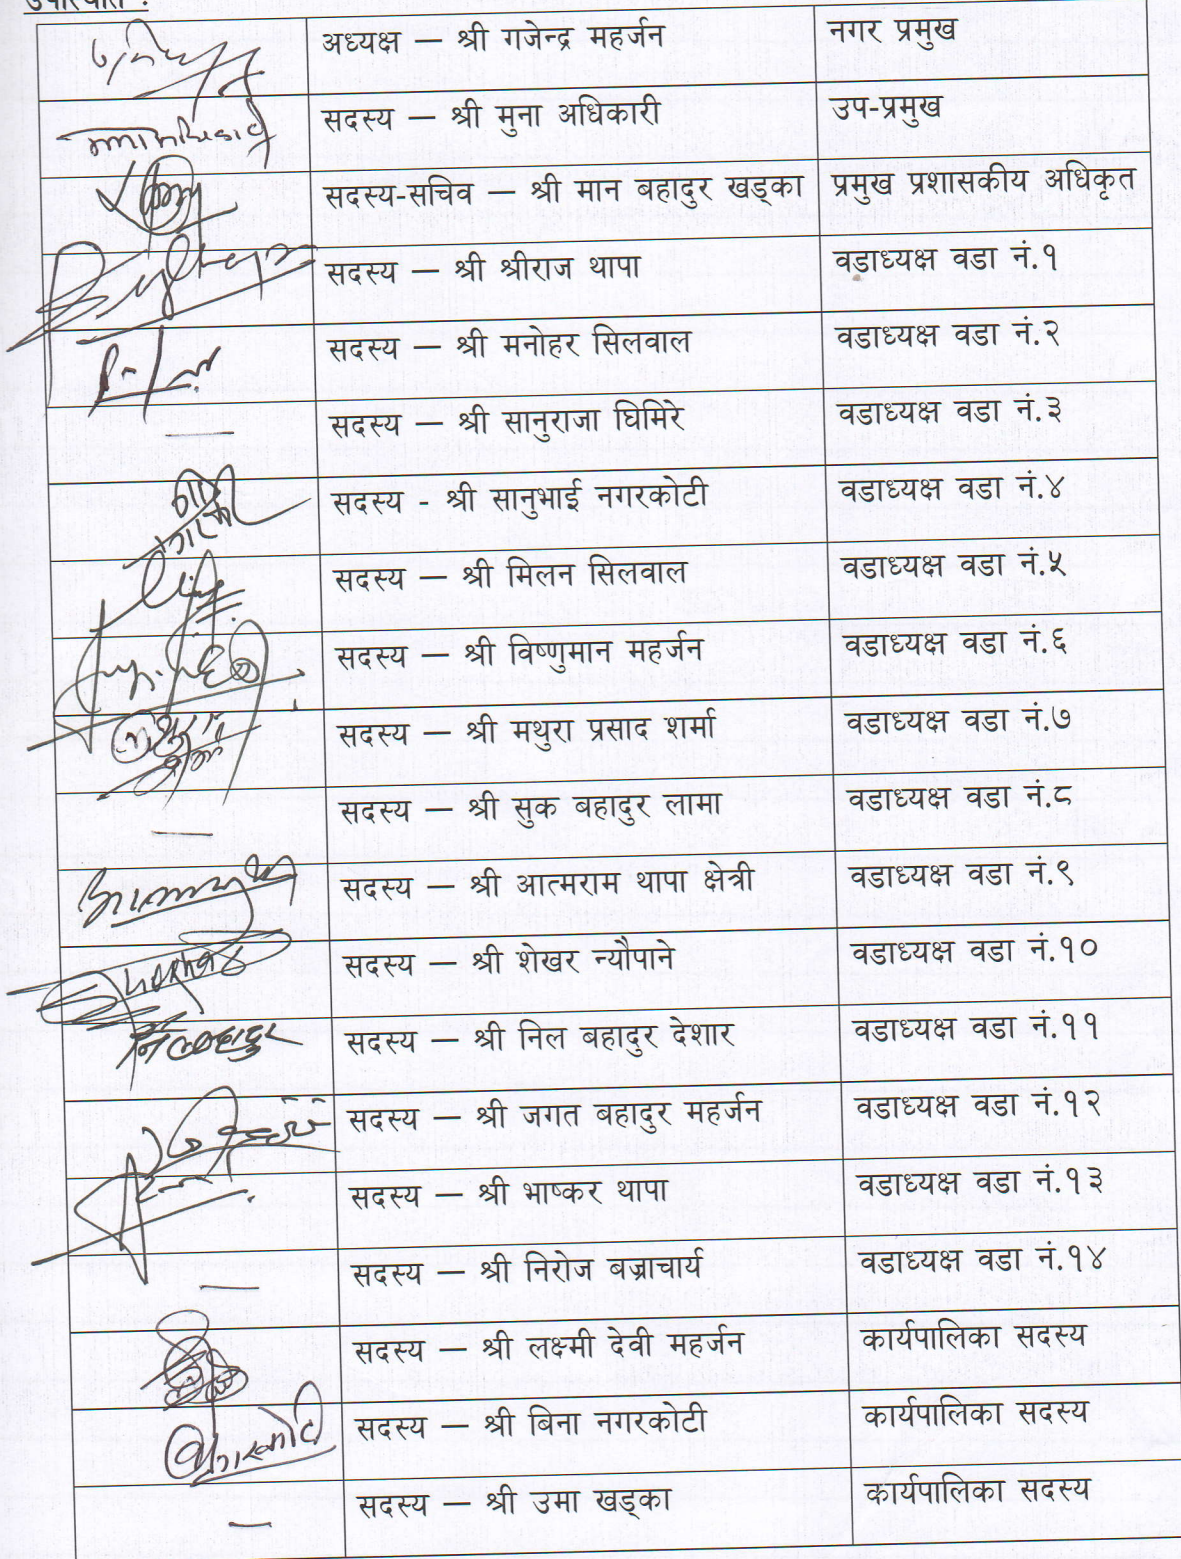 उपस्थिति :
अध्यक्ष — श्री गजेन्द्र महर्जन नगर प्रमुख
सदस्य — श्री मुना अधिकारी उप-प्रमुख
सदस्य-सचिव — श्री मान बहादुर खड्का प्रमुख प्रशासकीय अधिकृत
सदस्य — श्री श्रीराज थापा वडाध्यक्ष वडा नं.१
सदस्य — श्री मनोहर सिलवाल वडाध्यक्ष वडा नं.२
सदस्य — श्री सानुराजा घिमिरे वडाध्यक्ष वडा नं.३
सदस्य - श्री सानुभाई नगरकोटी वडाध्यक्ष वडा नं.४
सदस्य — श्री मिलन सिलवाल वडाध्यक्ष वडा नं.५
सदस्य — श्री विष्णुमान महर्जन वडाध्यक्ष वडा नं.६
सदस्य — श्री मथुरा प्रसाद शर्मा वडाध्यक्ष वडा नं.७
सदस्य — श्री सुक बहादुर लामा वडाध्यक्ष वडा नं.८
सदस्य — श्री आत्मराम थापा क्षेत्री वडाध्यक्ष वडा नं.९
सदस्य — श्री शेखर न्यौपाने वडाध्यक्ष वडा नं.१०
निलबहादुर सदस्य — श्री निल बहादुर देशार वडाध्यक्ष वडा नं.११
सदस्य — श्री जगत बहादुर महर्जन वडाध्यक्ष वडा नं.१२
सदस्य — श्री भाष्कर थापा वडाध्यक्ष वडा नं.१३
सदस्य — श्री निरोज बज्राचार्य वडाध्यक्ष वडा नं.१४
सदस्य — श्री लक्ष्मी देवी महर्जन कार्यपालिका सदस्य
सदस्य — श्री बिना नगरकोटी कार्यपालिका सदस्य
सदस्य — श्री उमा खड्का कार्यपालिका सदस्य